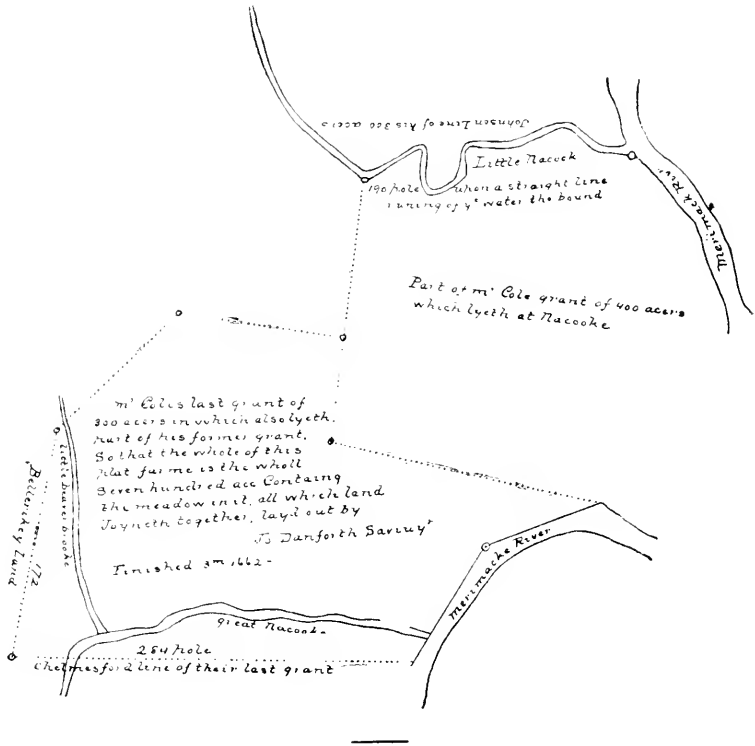 Johnson Line of his 300 acers
Little Nacock
190 pole upon a straight line
runing of yᵉ water the bound
Merimack River
Part of mʳ Cole grant of 400 acers
which lyeth at Nacooke
mʳ Coles last grant of
300 acers in which also lyeth
part of his former grant,
So that the whole of this
plat farme is the wholl
Seven hundred ace Containg
the meadow in it, all which land
Joyneth together, layd out by
Jᵒ Danforth Savuyʳ
Finished 3ᵐ 1662-
little beaver brooke
172
Bellerikey Land
Merimacke River
great Nacook-
284 pole
Chelmesford line of their last grant